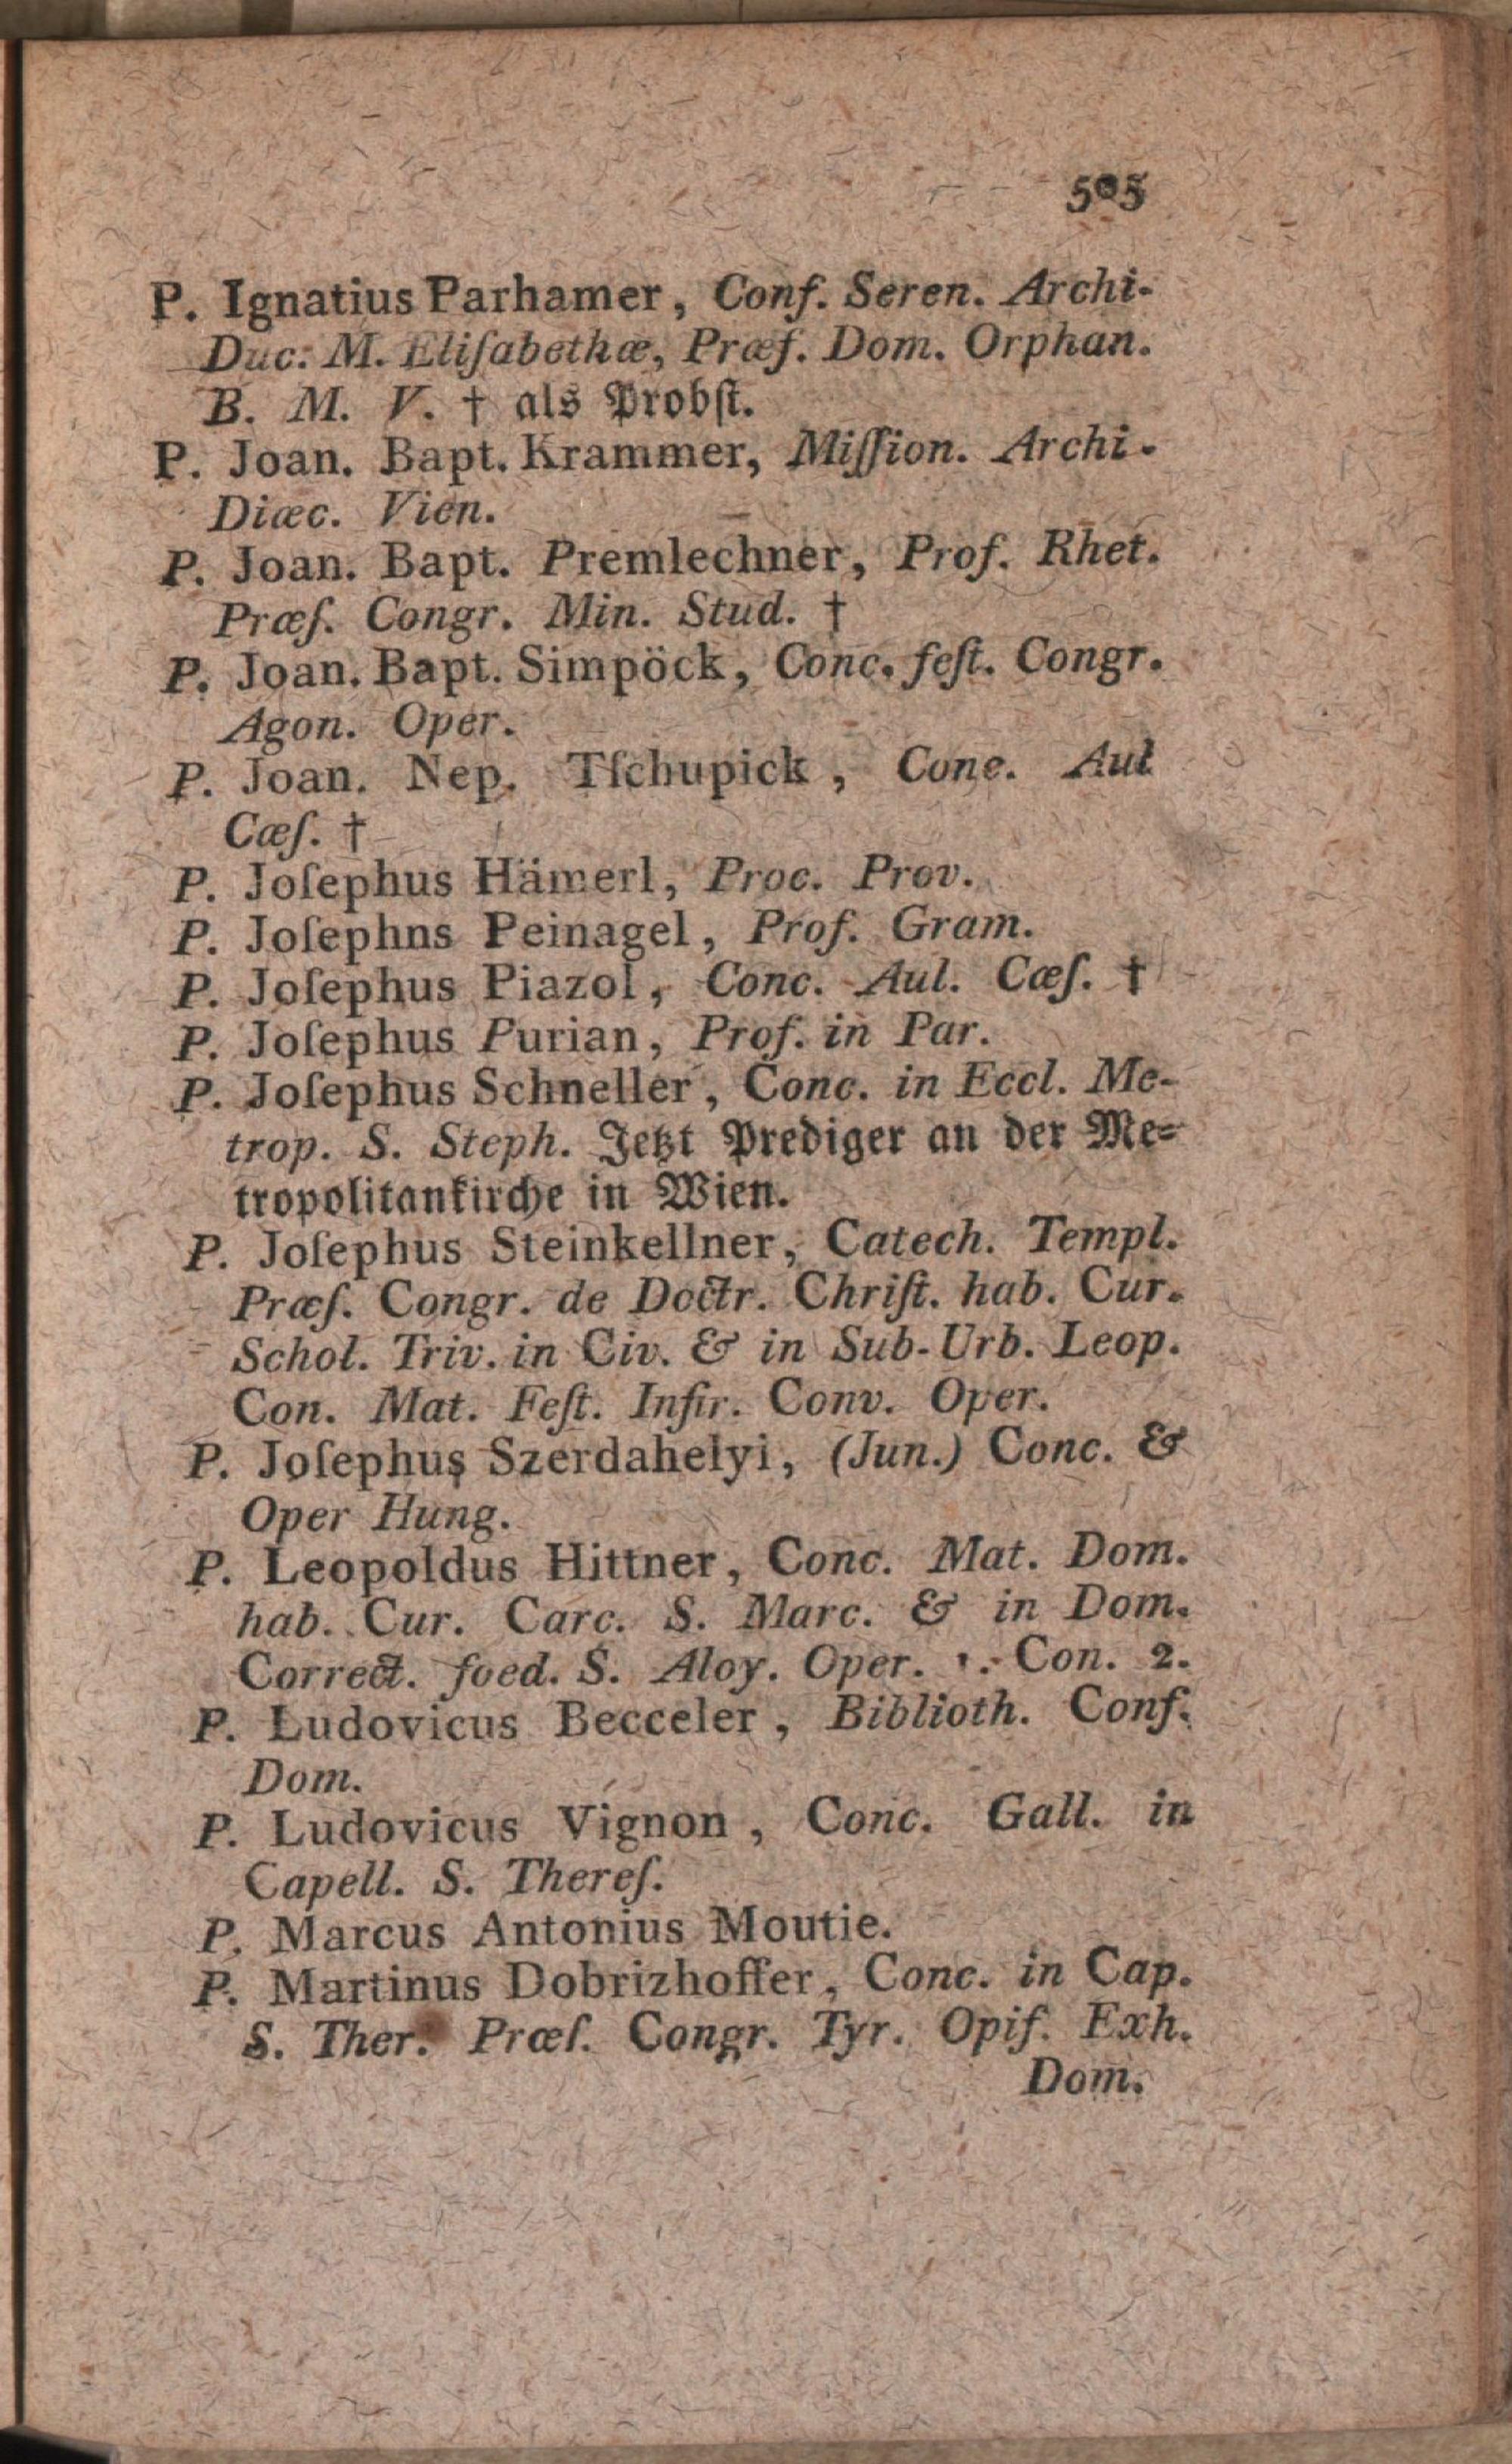 505
P. Ignatius Parhamer, Conf. Seren. Archi-
Duc. M. Eliſabethæ, Præf. Dom. Orphan.
B. M. V. † als Probſt.
P. Joan. Bapt. Krammer, Miſſion. Archi-
Diæc. Vien.
P. Joan. Bapt. Premlechner, Prof. Rhet.
Præſ. Congr. Min. Stud. †
P. Joan. Bapt. Simpöck, Conc. feſt. Congr.
Agon. Oper.
P. Joan. Nep. Tſchupick, Conc. Aul
Cæſ. †
P. Joſephus Hämerl, Proc. Prov.
P. Joſephns Peinagel, Prof. Gram.
P. Joſephus Piazol, Conc. Aul. Cæſ. †
P. Joſephus Purian, Prof. in Par.
P. Joſephus Schneller, Conc. in Eccl. Me-
trop. S. Steph. Jetzt Prediger an der Me-
tropolitankirche in Wien.
P. Joſephus Steinkellner, Catech. Templ.
Præſ. Congr. de Doctr. Chriſt. hab. Cur.
Schol. Triv. in Civ. & in Sub-Urb. Leop.
Con. Mat. Feſt. Infir. Conv. Oper.
P. Joſephus Szerdahelyi, (Jun.) Conc. &
Oper Hung.
P. Leopoldus Hittner, Conc. Mat. Dom.
hab. Cur. Carc. S. Marc. & in Dom.
Correct. foed. S. Aloy. Oper. 1. Con. 2.
P. Ludovicus Becceler, Biblioth. Conf.
Dom.
P. Ludovicus Vignon, Conc. Gall. in
Capell. S. Thereſ.
P. Marcus Antonius Moutie.
P. Martinus Dobrizhoffer, Conc. in Cap.
S. Ther. Præſ. Congr. Tyr. Opif. Exh.
Dom.